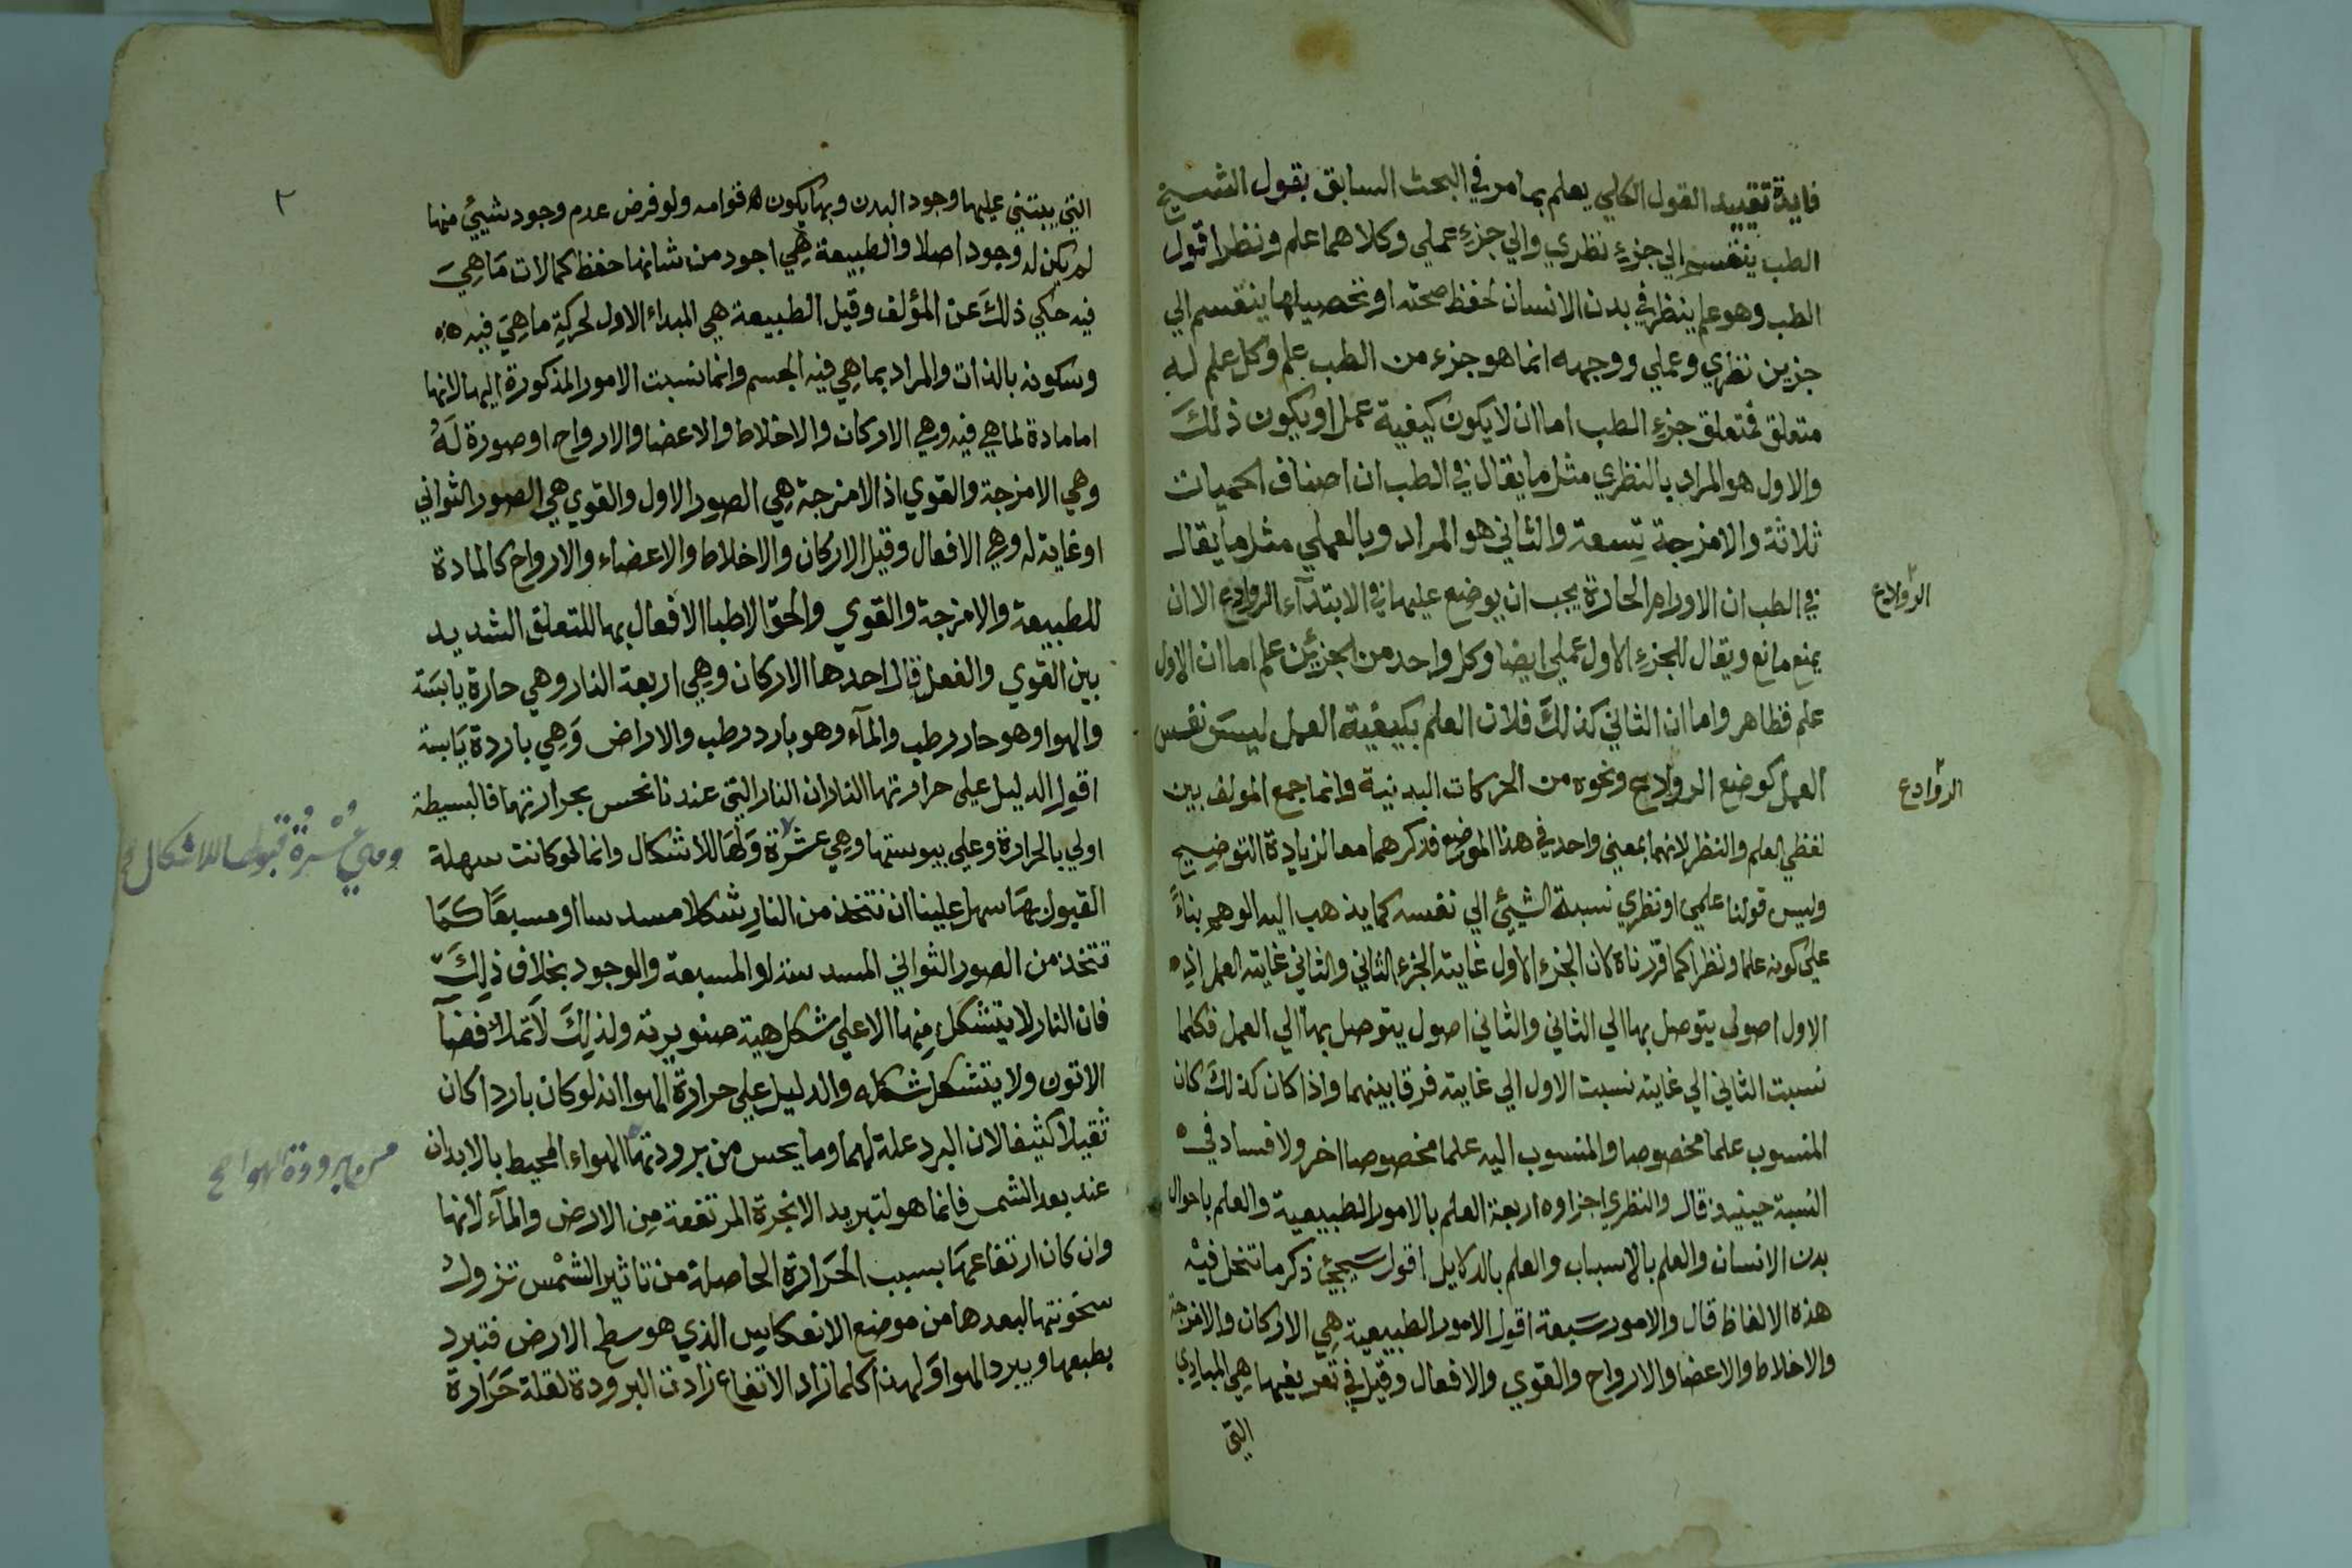 فايدة تقييد القول الكلي يعلم بما مر في البحث السابق بقول الشيخ
الطب ينقسم الي جزء نظري والي جزء عملي وكلاهما علم ونظر اقول
الطب وهو علم ينظر في بدن الانسان لحفظ صحته او تحصيلها ينقسم الي
جزين نظري وعملي ووجهه انما هو جزء من الطب علم وكل علم له
متعلق فمتعلق جزء الطب اما ان لا يكون كيفية عمل او يكون ذلك
والاول هو المراد بالنظري مثل ما يقال في الطب ان اصناف الحميات
ثلاثة والامزجة تسعة والثاني هو المراد وبالعملي مثل ما يقال
في الطب ان الاورام الحارة يجب ان يوضع عليها في الابتدآء الروادع الا ان
الروادع
يمنع مانع ويقال للجزء الاول عملي ايضا وكل واحد من الجزئين علم اما ان الاول
علم فظاهر واما ان الثاني كذلك فلان العلم بكيفية العمل ليس نفس
العمل كوضع الروادع ونحوه من الحركات البدنية وانما جمع المولف بين
الروادع
لفظي العلم والنظر لانهما بمعني واحد في هذا الموضع فذكرهما معا لزيادة التوضيح
وليس قولنا علمي او نظري نسبة الشيئ الي نفسه كما يذهب اليه الوهم بناءً
علي كونه علما ونظرا كما قررناه لان الجزء الاول غايته الجزء الثاني والثاني غايته العمل اذ
الاول اصول يتوصل بها الي الثاني والثاني اصول يتوصل بها الي العمل فكلما
نسبت الثاني الي غايته نسبت الاول الي غايته فرقا بينهما واذا كان كذلك كان
المنسوب علما مخصوصا والمنسوب اليه علما مخصوصا اخر ولا فساد في
النسبة حينيذ قال والنظري اجزاوه اربعة العلم بالامور الطبيعية والعلم باحوال
بدن الانسان والعلم بالاسباب والعلم بالدلايل اقول سيجيئ ذكر ما تنحل فيه
هذه الالفاظ قال والامور سبعة اقول الامور الطبيعية هي الاركان والامزجة
والاخلاط والاعضا والارواح والقوي والافعال وقيل في تعريفها هي المبادي
التي
٢
التي يبتني عليها وجود البدن وبها يكون قوامه ولو فرض عدم وجود شيئ منها
لم يكن له وجود اصلا والطبيعة هي اجود من شانها حفظ كمالات ما هي
فيه حكي ذلك عن المؤلف وقيل الطبيعة هي المبداء الاول لحركة ما هي فيه
وسكونه بالذات والمراد بما هي فيه الجسم وانما نسبت الامور المذكورة اليها لانها
اما مادة لما هي فيه وهي الاركان والاخلاط والاعضا والارواح او صورة له
وهي الامزجة والقوي اذ الامزجة هي الصور الاول والقوي هي الصور الثواني
او غاية له وهي الافعال وقيل الاركان والاخلاط والاعضاء والارواح كالمادة
للطبيعة والامزجة والقوي والحق الاطبا الافعال بها للتعلق الشديد
بين القوي والفعل قال احدها الاركان وهي اربعة النار وهي حارة يابسة
والهوا وهو حار رطب والمآء وهو بارد رطب والاراض وهي باردة يابسة
اقول الدليل علي حرارتها النار ان النار التي عندنا نحس بحرارتها فالبسيطة
اولي بالحرارة وعلي يبوستها وهي عشرة ولها للاشكال وانما لو كانت سهلة
وهي عُسْرة قبولها للاشكال صح
القبول بها سهل علينا ان نتخذ من النار شكلا مسدسا او مسبعا كما
تتخذ من الصور الثواني المسدسة او المسبعة والوجود بخلاف ذلك
فان النار لا يتشكل منها الا علي شكل هية صنوبرته ولذلك لا تملأ فضآ
الاتون ولا يتشكل شكله والدليل علي حرارة الهوا انه لو كان باردا كان
ثقيلا كثيفا لان البرد علة لهما وما يحس من برودتها الهواء المحيط بالابدان
من برودة الهوا صح
عند بعد الشمس فانما هو لتبريد الابخرة المرتفعة من الارض والمآء لانها
وان كان ارتفاعها بسبب الحرارة الحاصلة من تاثير الشمس تزول
سخونتها لبعدها من موضع الانعكاس الذي هو سطح الارض فتبرد
بطبعها ويبرد الهوا ولهذا كلما زاد الارتفاع زادت البرودة لقلة حرارة